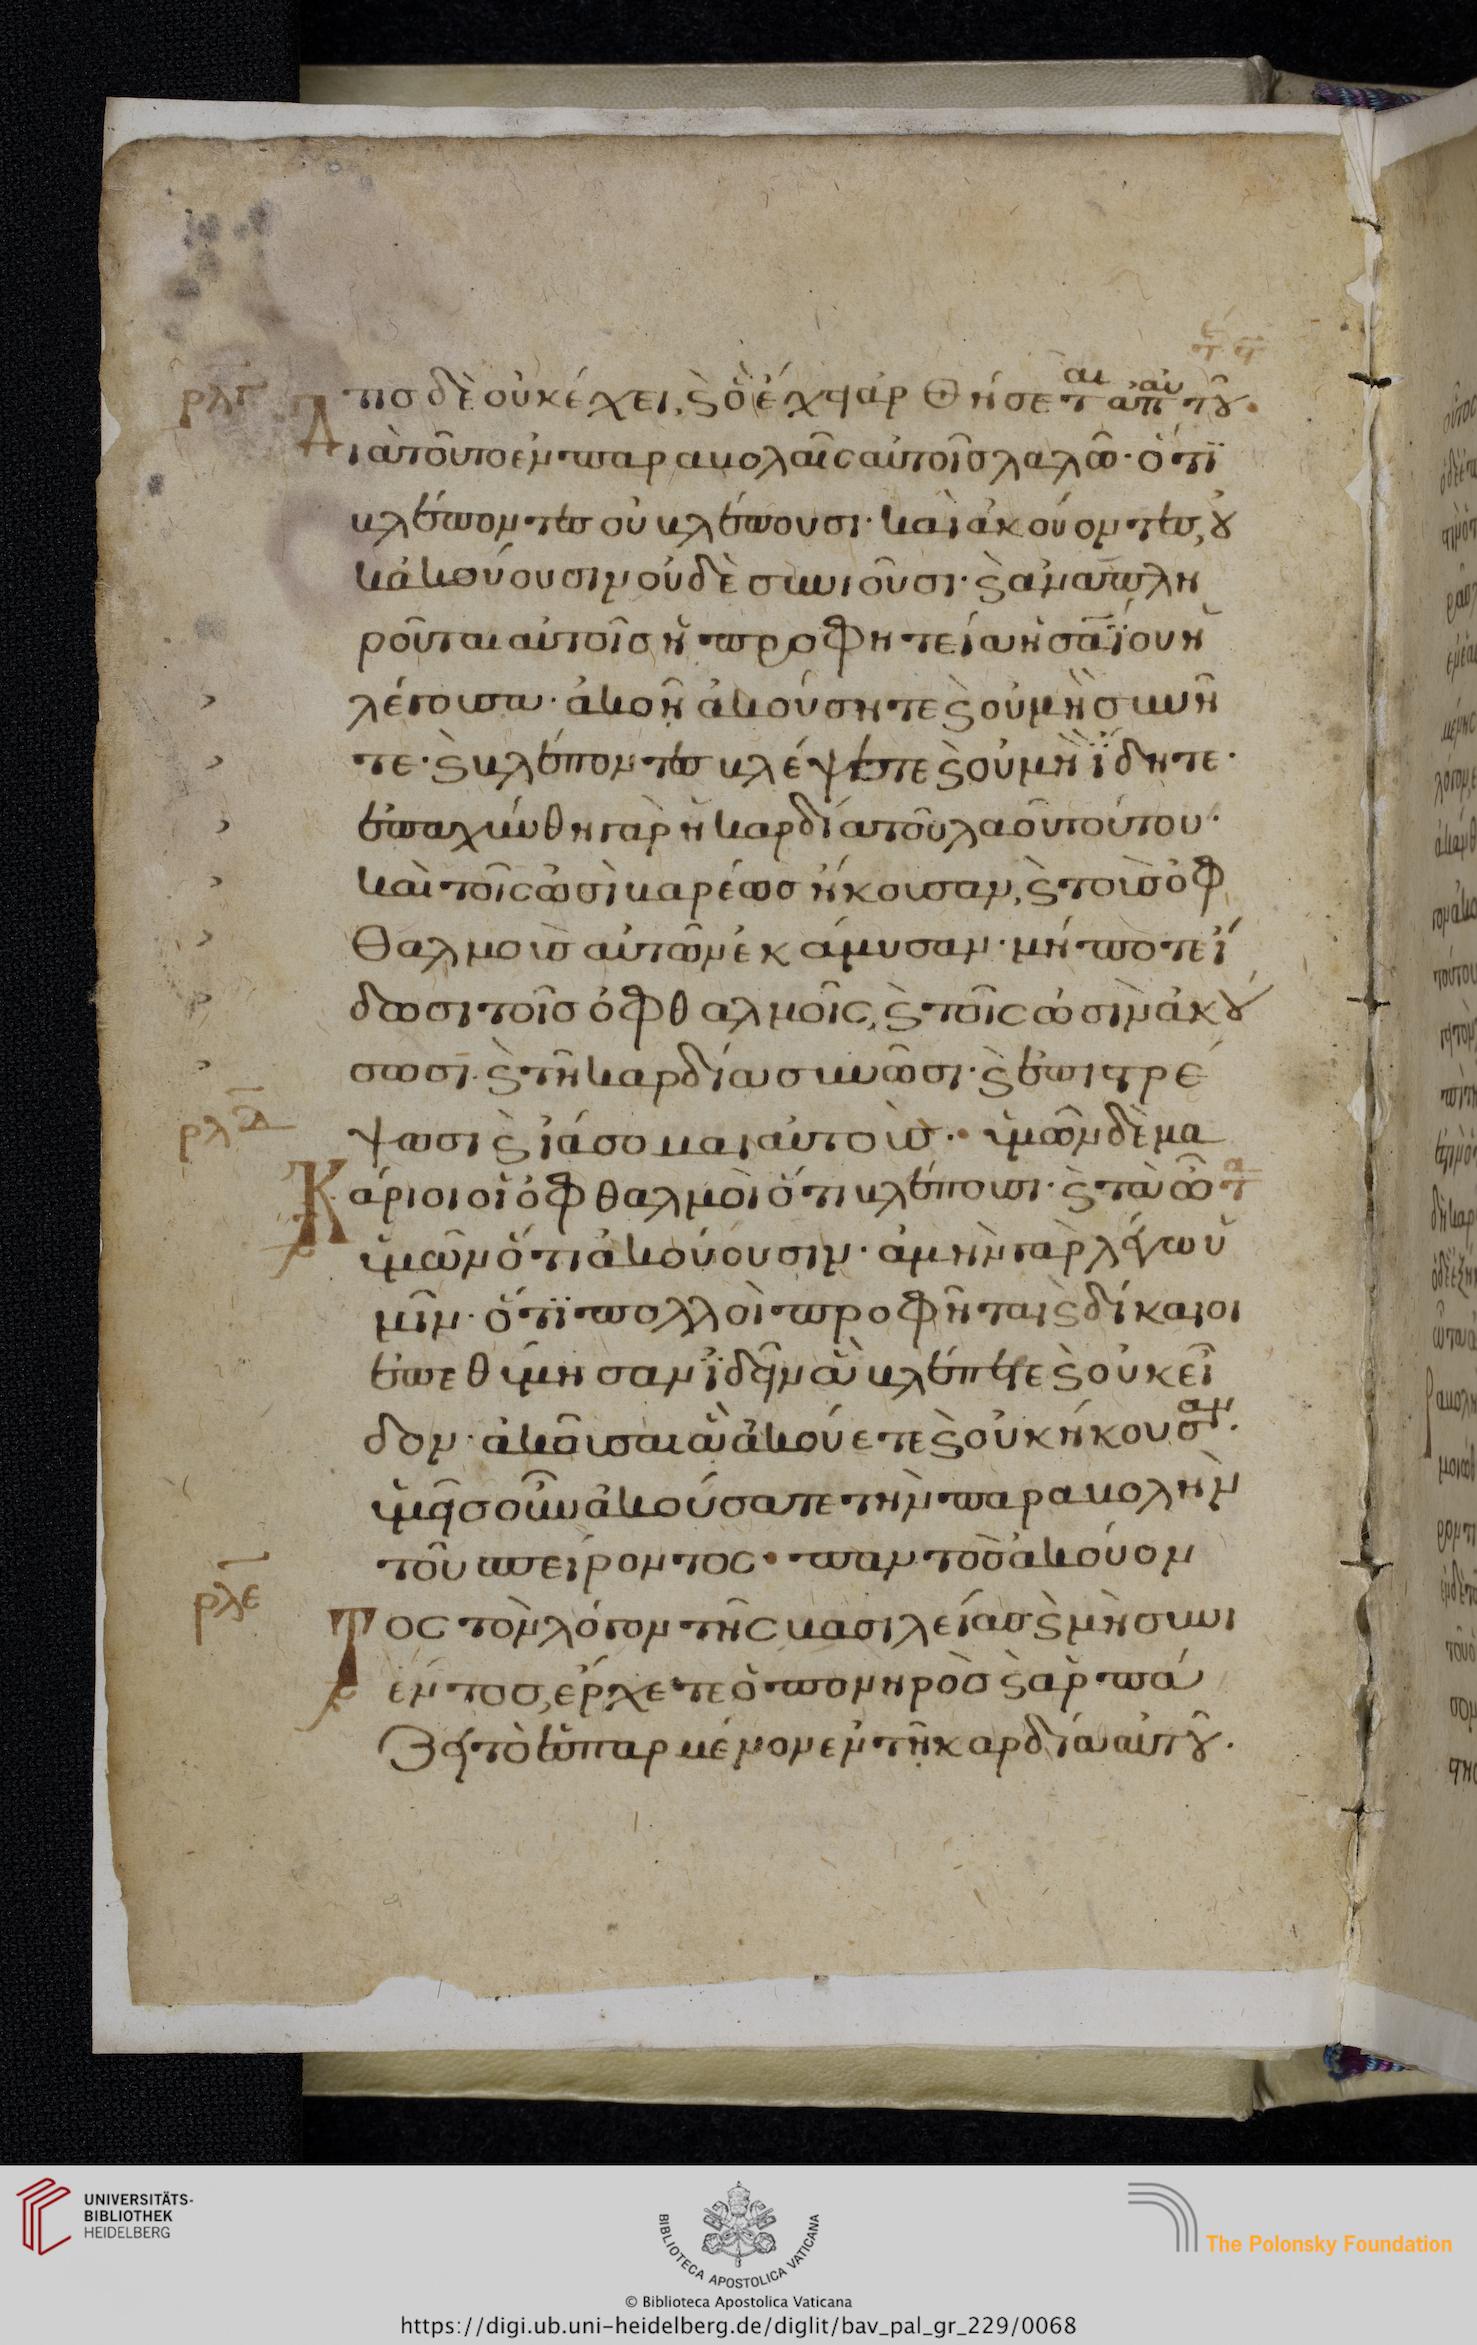 ρλγ
τις δὲ οὐκ έχει, ϛ ὃ ἔχει ἀρθήσεται ἀπ αὐτοῦ.
Διὰ τοῦτο ἐν παραβολαῖς αὐτοῖς λαλῶ· ὅτι
βλέποντες οὐ βλέπουσι· καὶ ἀκούοντες, οὐ
κ ἀκούουσιν οὐδὲ συνιοῦσι· ϛ ἀναπλη
ροῦται αὐτοῖς ἡ προφητεία ἡσαΐου ἡ
λέγουσα· ἀκοῇ ἀκούσητε ϛ οὐ μὴ συνῆ
τε· ϛ βλέποντες βλέψετε ϛ οὐ μὴ ἴδητε·
ἐπαχύνθη γὰρ ἡ καρδία τοῦ λαοῦ τούτου·
καὶ τοῖς ὠσὶ βαρέως ἤκουσαν, ϛ τοὺς ὀφ
θαλμοὺς αὐτῶν ἐκάμυσαν· μήποτε ἴ
δωσι τοῖς ὀφθαλμοῖς, ϛ τοῖς ὠσὶν ἀκού
σωσι· ϛ τῇ καρδία συνῶσι· ϛ ἐπιστρέ
ρλδ
ψωσι ϛ ἰάσομαι αὐτούς·· ὑμῶν δὲ μα
Κάριοι οἱ ὀφθαλμοὶ ὅτι βλέπουσι· ϛ τὰ ὦτα
ὑμῶν ὅτι ἀκούουσιν· ἀμὴν γὰρ λέγω ὑ
μῖν· ὅτι πολλοὶ προφῆται ϛ δίκαιοι
ἐπεθύμησαν ἰδεῖν ἃ βλέπετε ϛ οὐκ εἶ
δον· ἀκοῦσαι ἃ ἀκούετε ϛ οὐκ ήκουσαν·
ὑμεῖς οὖν ἀκούσατε τὴν παραβολὴν
τοῦ σπείροντος· παντὸς ἀκούον
ρλε
Τος τὸν λόγον τῆς βασιλείας ϛ μὴ συνι
έντος, ἔρχετε ὁ πονηρὸς ϛ ἁρπά
ζει τὸ ἐσπαρμένον ἐν τῇ καρδία αὐτοῦ.
UNIVERSITÄTS-
BIBLIOTHEK
HEIDELBERG
BIBLIOTECA APOSTOLICA VATICANA
The Polonsky Foundation
© Biblioteca Apostolica Vaticana
https://digi.ub.uni-heidelberg.de/diglit/bav_pal_gr_229/0068